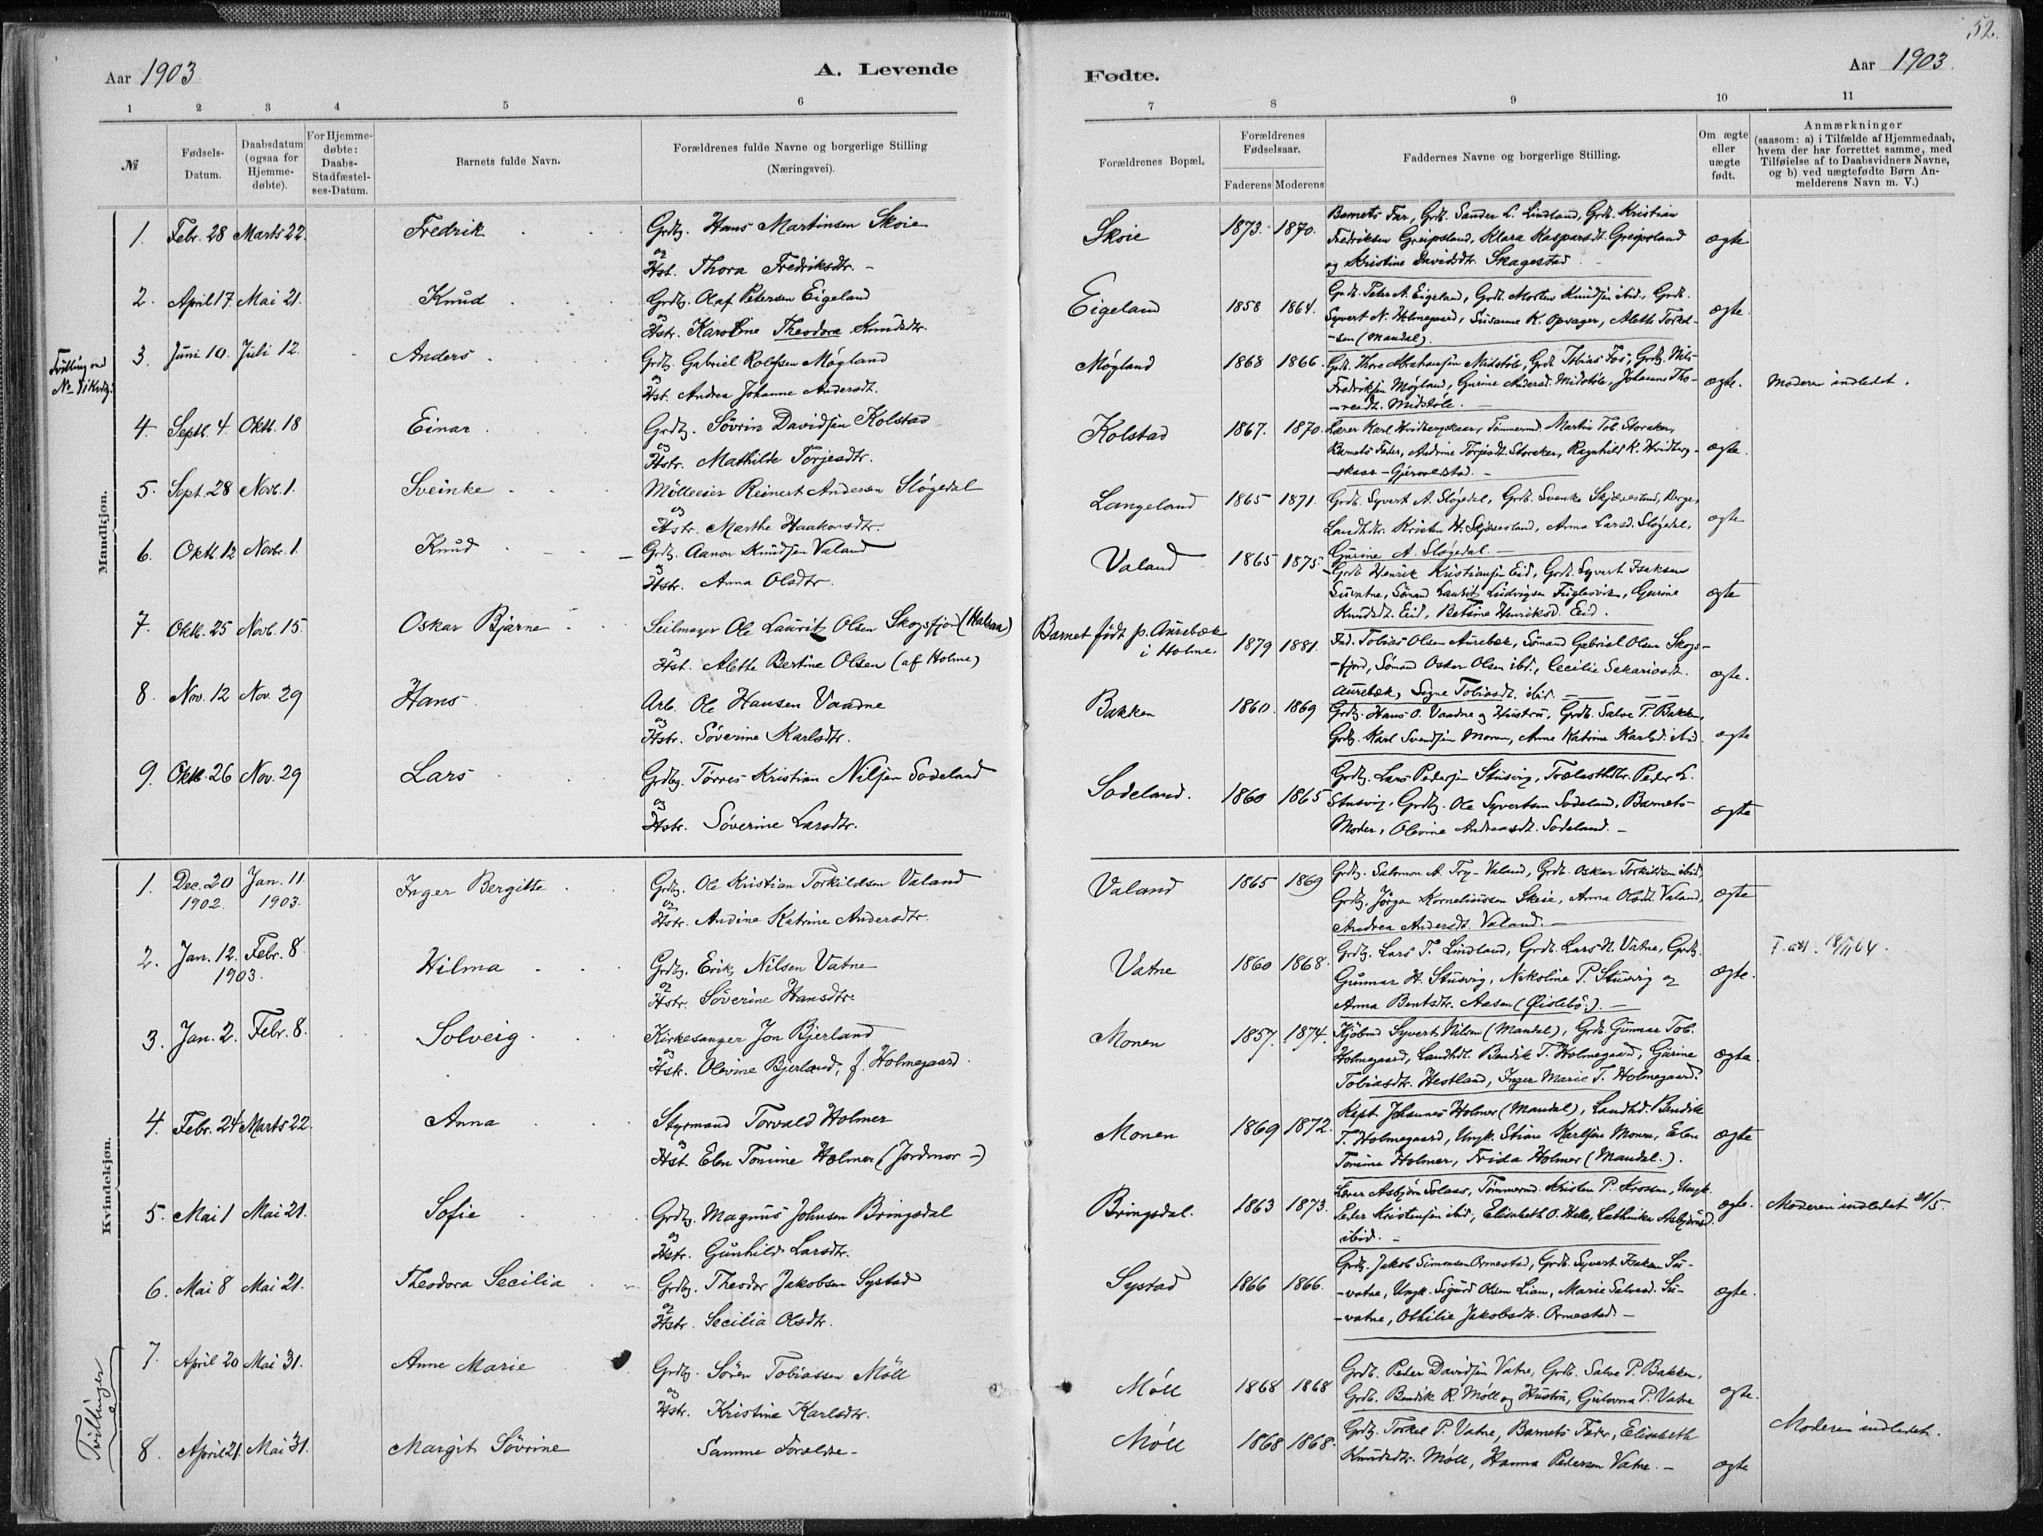 52.
Aar 1903
A. Levende
Fødte.
Aar 1903.
1 2 3 4 5 6 7 8 9 10 11
№
Fødsels-Datum.
Daabsdatum (ogsaa for Hjemme-døbte).
For Hjemme-døbte: Daabs-Stadfæstel-ses-Datum.
Barnets fulde Navn.
Forældrenes fulde Navne og borgerlige Stilling (Næringsvei).
Forældrenes Bopæl.
Forældrenes Fødselsaar.
Faderens Moderens
Faddernes Navne og borgerlige Stilling.
Om ægte eller uægte født.
Anmærkninger
(saasom: a) i Tilfælde af Hjemmedaab,
hvem der har forrettet samme, med
Tilføielse af to Daabsvidners Navne,
og b) ved uægtefødte Børn An-
melderens Navn m. V.)
Mandkjøn.
1. Febr. 28 Marts 22. Fredrik Grdbg. Hans Martinsen Skoie
og
Hst. Thora Fredriksdtr. -
Skoie 1873. 1870. Barnets Far, Grdb. Sander L. Lindland, Grdb. Kristian
Fredriksen Greipsland, Klara Kaspersdt. Greipsland
og Kristine Davidsdtr. Skagestad.
ægte
2. April 17 Mai 21. Knud Grdbg. Olaf Petersen Eigeland
og
Hstr. Karoline Theodora Knudsdtr.
Eigeland 1858 1864. Grdb. Peter A. Eigeland, Grdb. Morten Knudsen ibid., Grdb.
Syvert N. Holmegaard, Susanne K. Opsager, Alette Torkel-
-sen (Mandal).
ægte.
Tvilling med
3. Juni 10. Juli 12. Anders Grdb. Gabriel Rolfsen Møgland
og
Hst. Andrea Johanne Andersdt.
Møgland 1868 1866. Grdb. Thore Abrahamsen Midstøl, Grdb. Tobias Fos, Grdbg. Nils
Fredriksen Møgland, Gurine Andersd. Midstøl, Johanne Tho-
-resdt. Midstøl.
ægte. Moderen indledet.
4. Septb. 4. Oktb. 18 Einar Grdbg. Søvrin Davidsen Kolstad
og
Hstr. Mathilde Torjesdtr.
Kolstad 1867. 1870. Lærer Karl Hvidbergskaar, Tømmermd. Martin Tob. Storaker,
Barnets Fader, Andrine Torjesdt. Storaker, Ragnhild K. Hvidberg-
-skaar - Gjervoldstad. -
ægte.
5. Sept. 28 Novb. 1. Sveinke Mølleeier Reinert Andersen Sløgedal
og
Hstr. Marthe Haakonsdtr.
Langeland 1865 1871. Grdb. Syvert A. Sløgedal, Grdb. Svenke Skjævesland,
Landhdtr. Kristen H. Skjævesland, Anna Larsd. Sløgedal,
Gurine A. Sløgedal. -
ægte
6. Oktb 12 Novbr. 1. Knud Grdbg. Aanon Knudsen Valand
og
Hstr. Anna Olsdtr.
Valand 1865 1875. Grdb Henrik Kristiansen Eid, Grdb. Syvert Isaksen
Suvatne, Sømand Laurits Ludvigsen Fuglevik, Gurine
Knudsdt. Eid, Betsine Henriksd. Eid.
ægte
7. Oktb. 25 Novb. 15. Oskar Bjarne Seilmager Ole Lauritz Olsen Skogsfjord (Halsaa)
og
Hst. Alette Bertine Olsen (af Holme)
Barnet født p. Aurebæk
i Holme.
1879 1881. Ind. Tobias Olsen Aurebæk, Sømand Gabriel Olsen Skogs-
-fjord, Sømand Oskar Olsen ibd., Cecilie Sekariasdt.
Aurebæk, Signe Tobiasdt. ibid
ægte.
8. Nov. 12 Nov. 29 Hans Arb. Ole Hansen Vaadne
og
Hstr. Søverine Karlsdtr.
Bakken 1860. 1869 Grdbg. Hans O. Vaadne og Hustru, Grdb. Salve P. Bakken,
Grdbg. Karl Svendsen Monen, Anne Katrine Karlsd. ibid.
ægte
9. Oktb. 26 Nov. 29 Lars Grdbg. Torres Kristian Nilsen Sodeland
og
Hstr. Søverine Larsdtr.
Sodeland. 1860 1865 Grdbg. Lars Pedersen Stusvig, Trælasthdtr. Peder L.
Stusvig, Grdbg. Ole Syvertsen Sodeland, Barnets
Moder, Olevine Andreasdt. Sodeland. -
ægte
Kvindekjøn.
1. Dec. 20 1902. Jan. 11 1903. Inger Bergitte Grdbg. Ole Kristian Torkildsen Valand
og
Hstr. Andine Katrine Andersdtr.
Valand 1865 1869 Grdbg. Salomon A. Try-Valand, Grdb. Oskar Torkildsen ibid.,
Grdbg. Jørgen Kornelinssen Skeie, Anna Olsdt. Valand,
Andrea Andersdt. Valand. -
ægte
2. Jan. 12. 1903. Febr. 8. Hilma Grdbg. Erik Nilsen Vatne
og
Hstr. Søverine Hansdtr.
Vatne 1860 1868. Grdbg. Lars T. Lindland, Grdb. Lars N. Vatne, Grdbg.
Gunnar H. Stusvig, Nikoline P. Stusvig og
Anna Bentsdtr. Aasen (Øislebø.) -
ægte. F. att. 18/11 64.
3. Jan. 2. Febr. 8. Solveig Kirkesanger Jon Bjerland
og
Hstr. Olevine Bjerland, f. Holmegaard.
Monen 1857. 1874. Kjøbmd Syvert Nilsen (Mandal), Grdb. Gunnar Tob.
Holmegaard, Landhdt. Bendik T. Holmegaard, Gurine
Tobiasdtr. Hestland, Inger Marie T. Holmegaard.
ægte.
4. Febr. 24 Marts 22. Anna Styrmand Torvald Holmer
og
Hst. Elen Tomine Holmer (Jordmor -)
Monen 1869 1872. Kapt. Johannes Holmer (Mandal), Landhd. Bendik
T. Holmegaard, Ungk. Stian Karlsen Monen, Elen
Tomine Holmer, Frida Holmer (Mandal.).
ægte
5. Mai 1 Mai 21. Sofie Grdbg. Magnus Johnsen Bringsdal
og
Hstr. Gunhild Larsdtr.
Bringsdal. 1863 1873. Lærer Asbjørn Solaas, Tømmermd. Kristen P. Krossen, Ungk.
Peder Kristensen ibid, Elisabeth O. Helle, Cathinka Asbjørnsd.
ibid. -
ægte. Moderen indledet 21/5.
6. Mai 8 Mai 21. Theodora Secilia Grdbg. Theodor Jakobsen Systad
og
Hstr. Secilia Olsdtr.
Systad 1866 1866. Grdbg. Jakob Simonsen Ormestad, Grdb. Syvert Isaksen Su-
-vatne, Ungk. Sigurd Olsen Lian, Marie Salvesd. Su-
-vatne, Othilie Jakobsdtr. Ormestad. -
ægte.
Tvillinger
7. April 20 Mai 31. Anne Marie Grdbg. Søren Tobiassen Møll
og
Hstr. Kristine Karlsdtr.
Møll 1868 1868 Grdb. Peder Davidsen Vatne, Grdb. Salve P. Bakken,
Grdb. Bendik R. Møll og Hustru, Gjulovna P. Vatne
ægte.
8. April 21. Mai 31. Margit Søvrine Samme Forældre -
Møll 1868 1868. Grdbg. Torkel P. Vatne, Barnets Fader, Elisabeth
Knudsdtr. Møll, Hanna Pedersen Vatne. -
ægte
Moderen indledet.